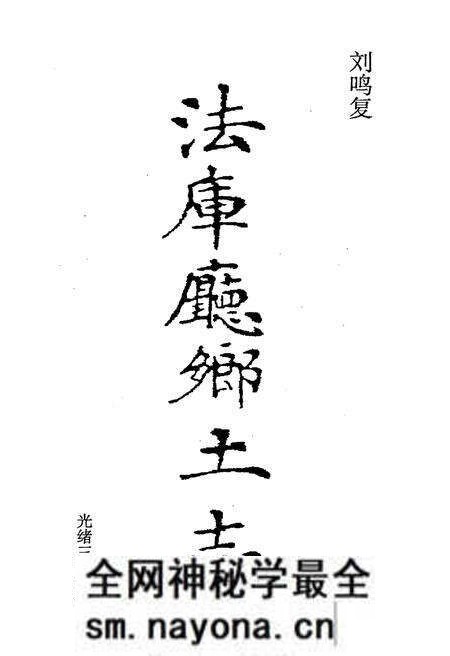 刘鸣复
法庫廳鄉土
光绪三
全网神秘学最全
sm.nayona.cn